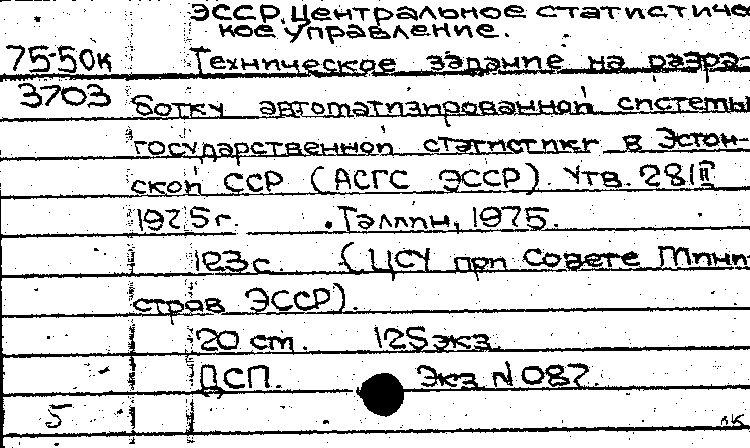 ЭССР. Центральное статистичес-
кое управление.
75-50к Техническое задание на разра-
3703 ботку автоматизированной системы
государственной статистики в Эстон-
ской ССР (АСГС ЭССР). Утв. 28/II
1975г. Таллин, 1975.
123с. (ЦСУ при Совете Мини-
стров ЭССР).
20 см. 125экз.
ДСП. Экз N 087.
5